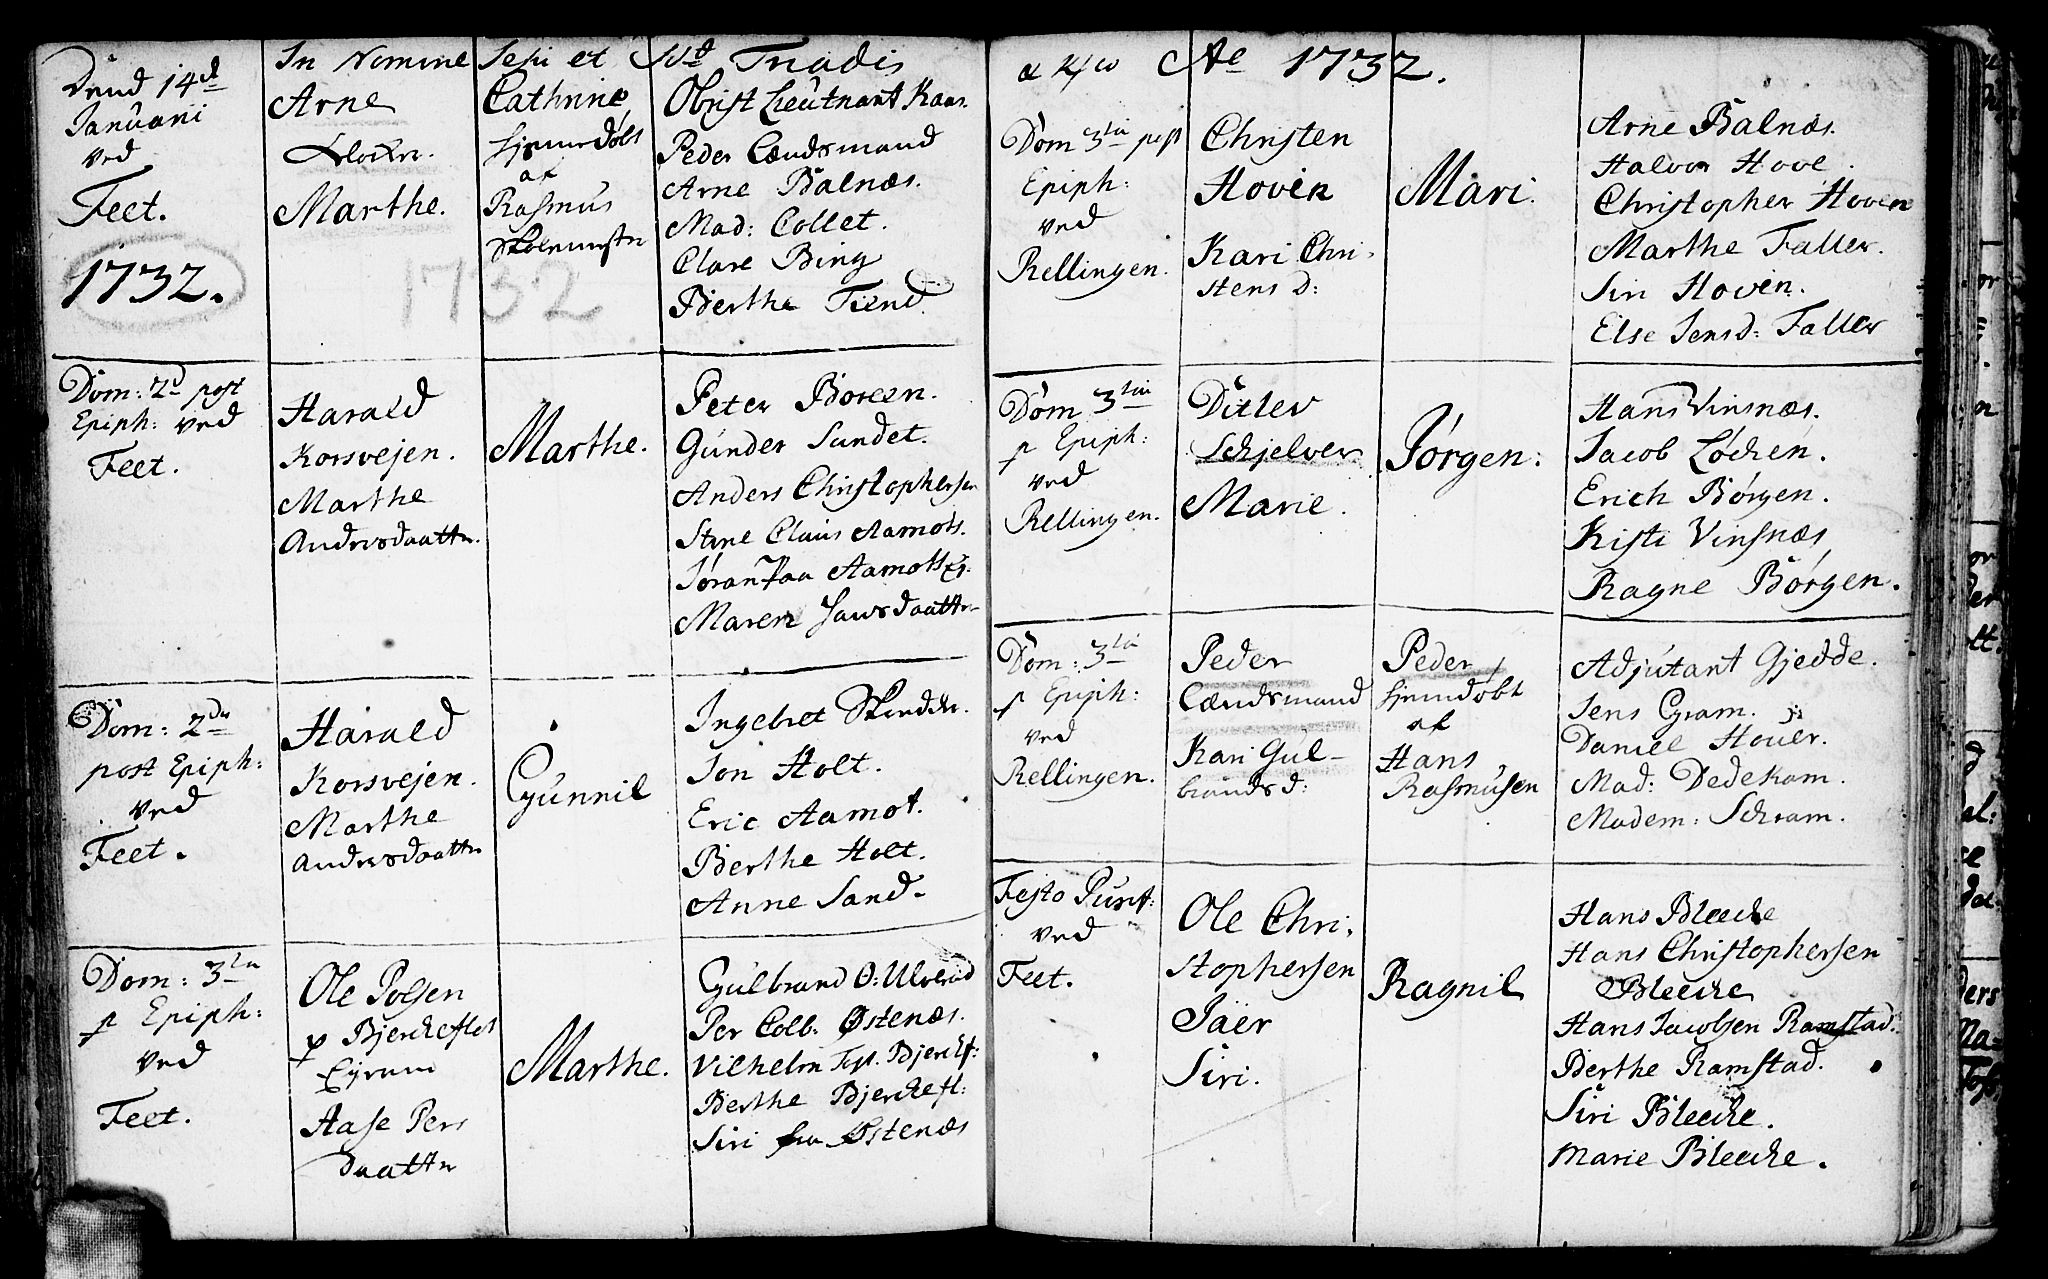 In Nomine Jesu et SSd Triadis
Dend 14d
Januarii
ved
Feet.
1732.
Arne
Klocker.
Marthe.
1732
Cathrine
hjemedøbt
af
Rasmus
Skolemester
Obrist Lieutnant Kaas.
Peder Lændsmand
Arne Balnæs.
Mad: Collet.
Clare Bing
Berthe Tiend.
Dom: 2d post
Epiph: ved
Feet.
Harald
Korsvejen.
Marthe
Andersdaatter.
Marthe.
Peter Boreen.
Gunder Sundet.
Anders Christophersen
Stine Claus Aamots.
Jøran Paa Aamots Ej.
Maren Hansdaatter
Dom: 2da
post Epiph:
ved
Feet.
Harald
Korsvejen.
Marthe
Andersdaatter
Gunnil
Ingebret Skredder.
Jon Holt.
Eric Aamot.
Berthe Holt.
Anne Sand.
Dom: 3tia
p Epiph:
ved
Feet.
Ole Polsen
p Bjerckeflet
Eyrum
Aase Pers
daatter
Marthe.
Gulbrand O: Ulverud
Per Colb: Østenæs.
Vilhelm Bjerckf:
Berthe Bjerckefl:
Siri fra Østenæs
Ao 1732.
Dom 3tia post
Epiph:
ved
Rellingen.
Christen
Hoven
Kari Chri-
stens D:
Mari.
Arne Balnæs.
Halvor Hove.
Christopher Hoven
Marthe Faller.
Siri Hoven.
Else Jensd: Faller
Dom 3tia
p Epiph:
ved
Rellingen.
Ditlev
Schjelver
Marie.
Jørgen.
Hans Vinsnæs.
Jacob Løcken.
Erich Børgen.
Kisti Vinsnæs
Ragne Børgen.
Dom: 3tia
p Epiph:
ved
Rellingen.
Peder
Lændsmand
Kari Gul-
brandsd:
Peder
hjemdøbt
af
Hans
Rasmusen
Adjutant Gjedde.
Jens Gram.
Daniel Houer.
Mad: Dedekam.
Madem: Schram.
Festo Purif:
ved
Feet.
Ole Chri-
stophersen
Jäer
Siri.
Ragnil
Hans Bleecke
Hans Christophersen
Bleecke
Hans Jacobsen Ramstad.
Berthe Ramstad.
Siri Bleecke.
Marie Bleecke.